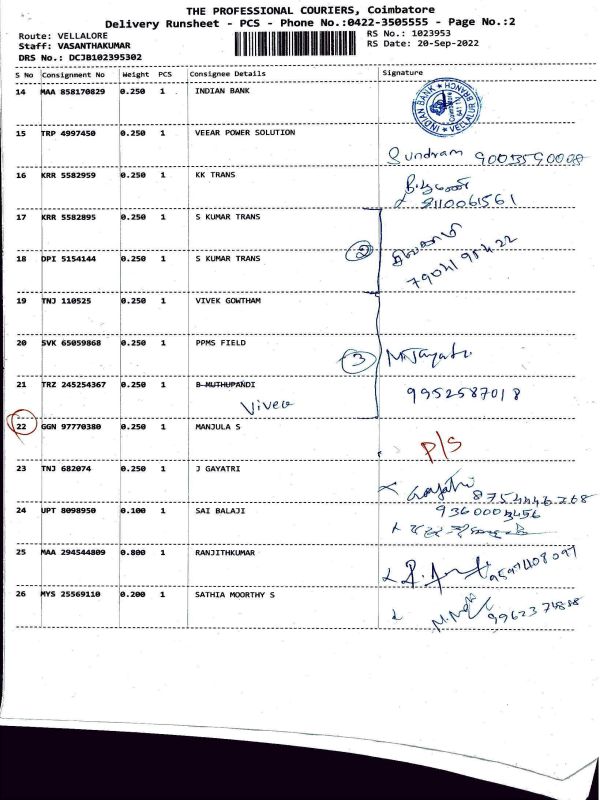 THE PROFESSIONAL COURIERS, Coimbatore
Delivery Runsheet - PCS - Phone No.:0422-3505555 - Page No.:2
Route: VELLALORE RS No.: 1023953
Staff: VASANTHAKUMAR RS Date: 20-Sep-2022
DRS No.: DCJB102395302
S No Consignment No Weight PCS Consignee Details Signature
14 MAA 858170829 0.250 1 INDIAN BANK
INDIAN BANK VELLALUR BRANCH
15 TRP 4997450 0.250 1 VEEAR POWER SOLUTION
Sundram
16 KRR 5582959 0.250 1 KK TRANS
8110061561
17 KRR 5582895 0.250 1 S KUMAR TRANS
2
18 DPI 5154144 0.250 1 S KUMAR TRANS
19 TNJ 110525 0.250 1 VIVEK GOWTHAM
20 SVK 65059868 0.250 1 PPMS FIELD
3
21 TRZ 245254367 0.250 1 B MUTHUPANDI
9952587018
22 GGN 97770380 0.250 1 MANJULA S
P/S
23 TNJ 682074 0.250 1 J GAYATRI
Gayatri
24 UPT 8098950 0.100 1 SAI BALAJI
25 MAA 294544809 0.800 1 RANJITHKUMAR
26 MYS 25569110 0.200 1 SATHIA MOORTHY S